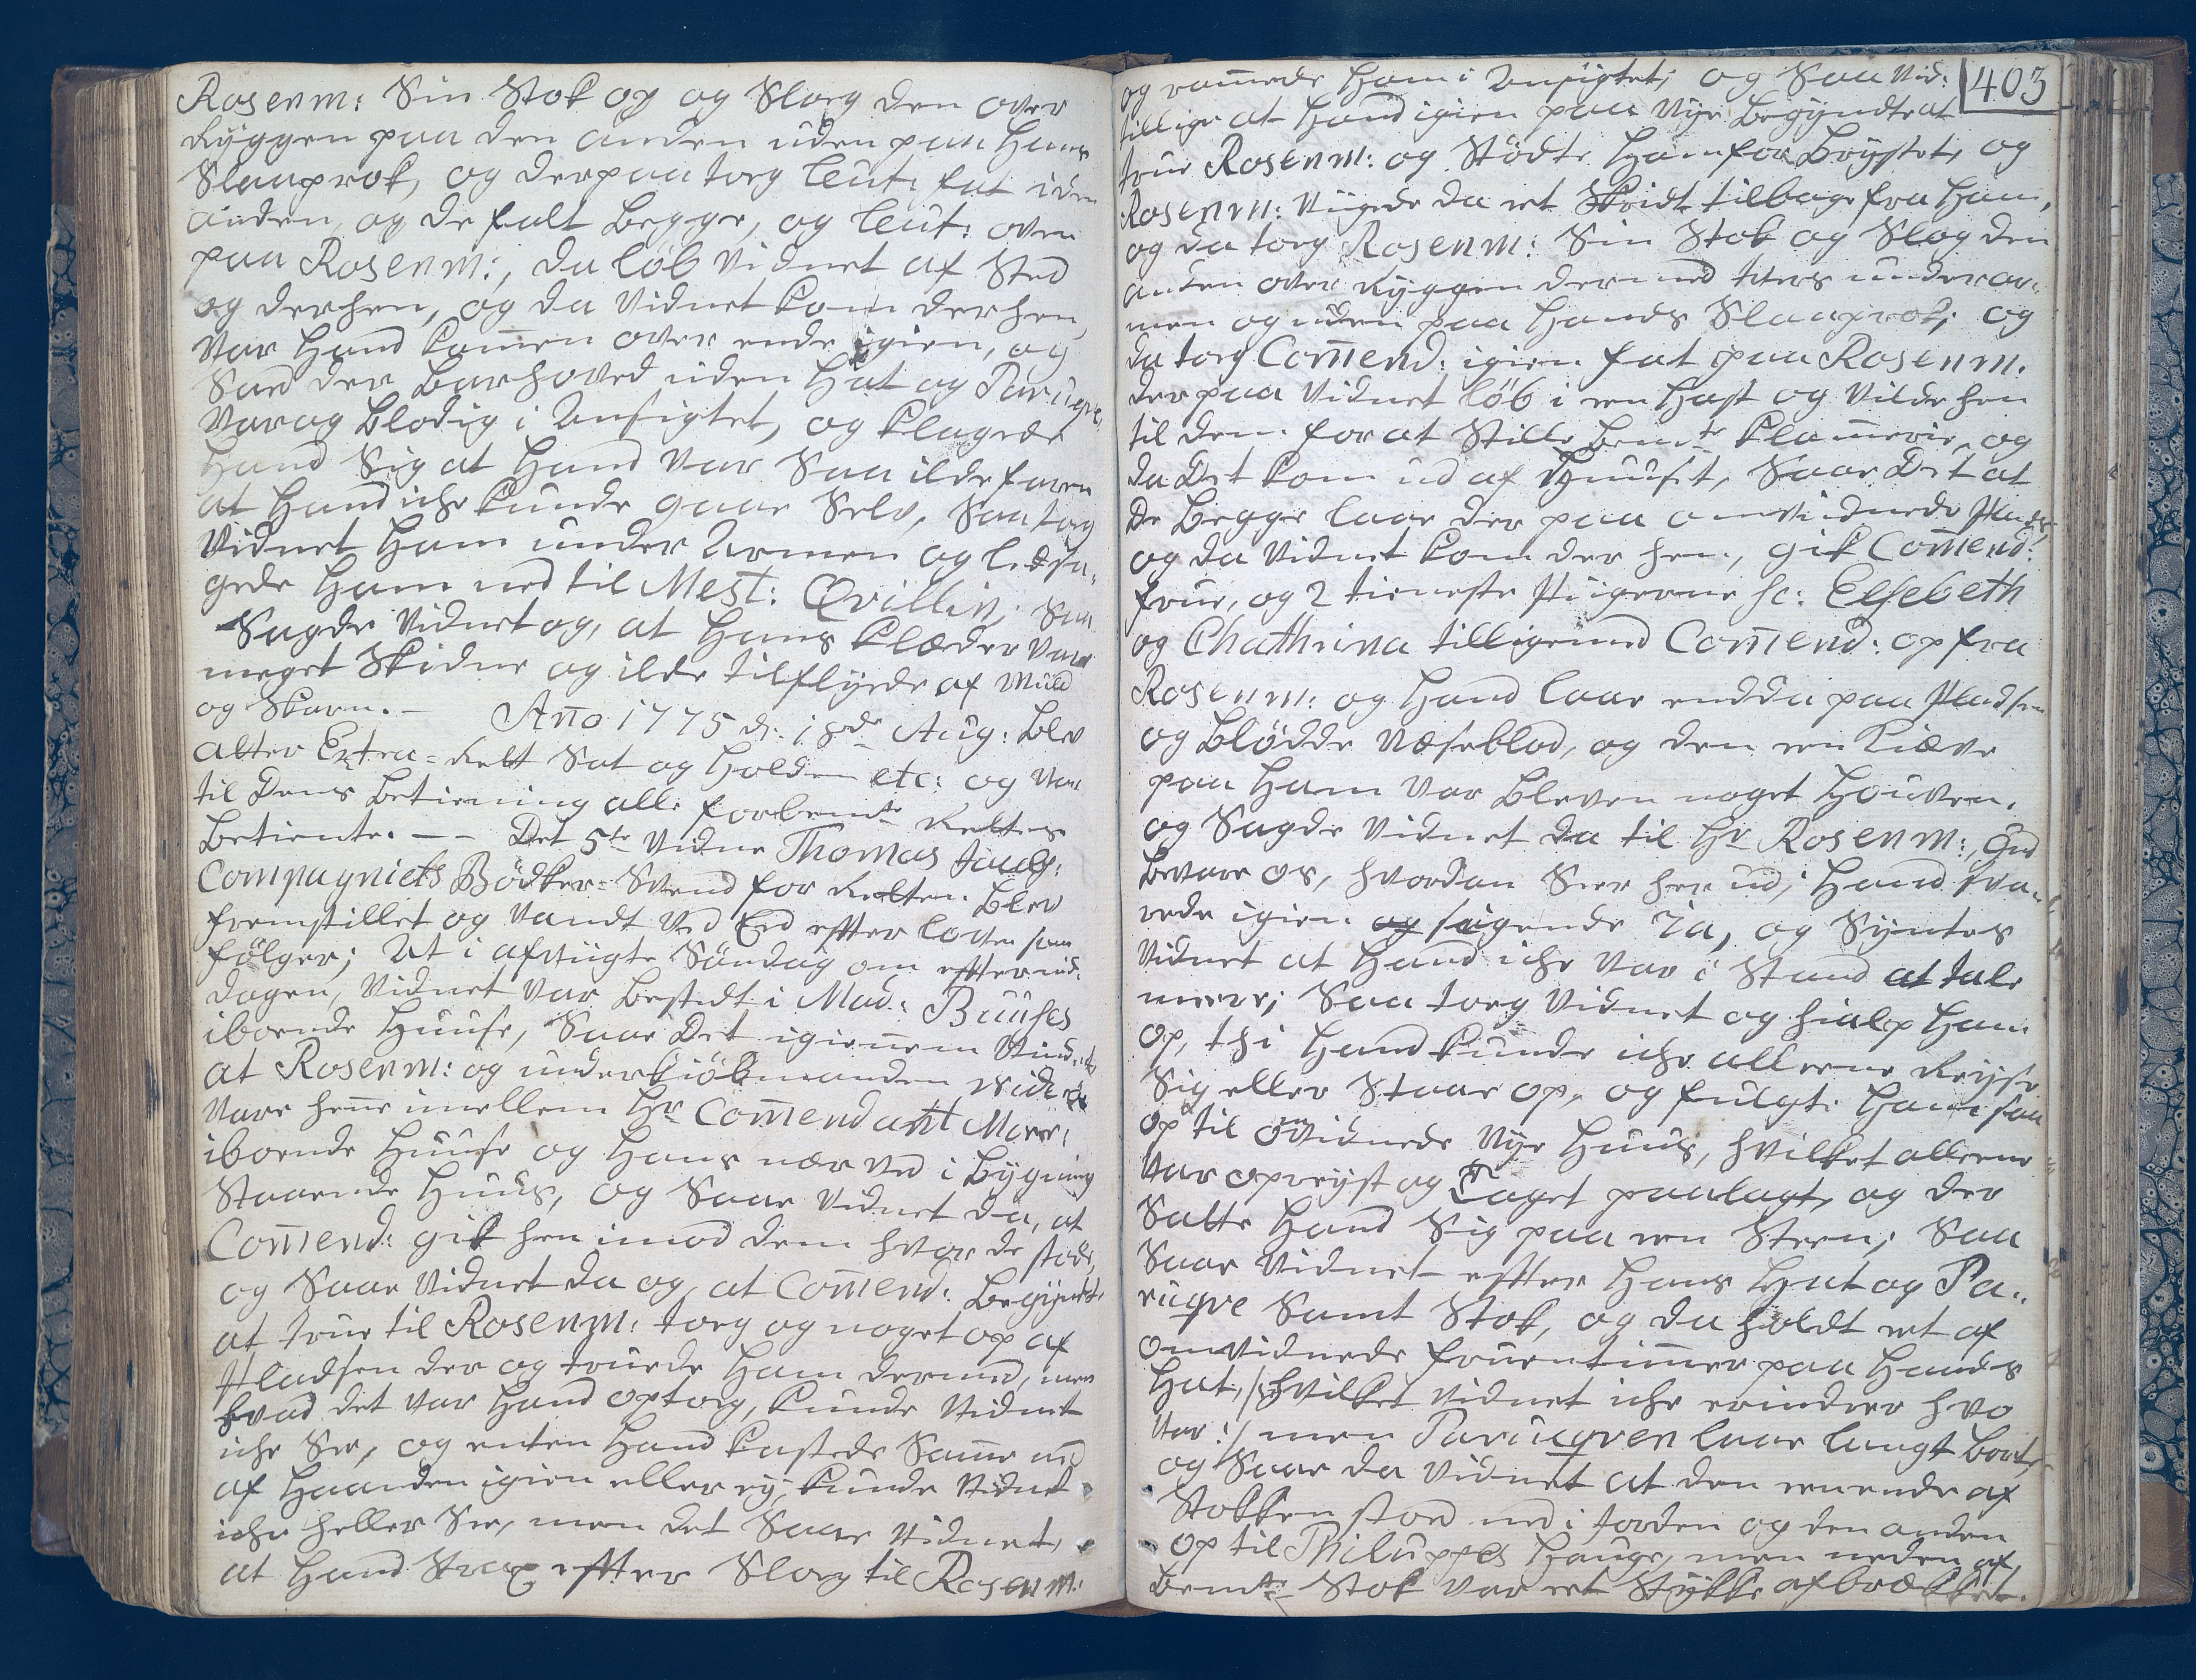 Rosenm: Sin Stok op og Slog den over
Ryggen paa den anden uden paa Hans
Slaaprok, og derpaa tog Leut: fat i den
anden, og de falt begge, og Leut: oven
paa Rosenm:, da løb Vidnet af Sted
og derhen, og da Vidnet kom derhen,
Var Hand kom̄en over ende igien, og
Sad der barhoved uden Hat og Paruqve,
Var og blodig i Ansigtet, og klagede
Hand Sig at Hand var Saa ilde faren
at Hand iche kunde gaae Selv, Saa tog
Vidnet Ham under Armen og ledsa-
gede Ham ned til Mest: Qvillin; Saa
Sagde Vidnet og, at Hans Klæder var
meget Skidne og ilde tilflyede af Muld
og Skarn. — An̄o 1775 d: 18de Aug: blev
atter Extra-Rett Sat og Holden etc: og var
til Dens betiening alle forbemte Rettes
betiente. — — Det 5te Vidne Thomas
Compagniets Bødker-Svend for Retten blev
fremstillet og Vandt ved Eed efter loven som
følger; At i afvigte Søndag om eftermid-
dagen, Vidnet var bestedt i Mad: Buuses
iboende Huuse, Saae Det igien̄em Vinduet
at Rosenm: og underkiøbmanden
Vare hen̄e imellem Hr Com̄endant
iboende Huuse og Hans nær ved i bygning
Staaende Huus, og Saae Vidnet da, at
Com̄end: gik hen imod dem hvor de stod,
og Saae Vidnet da og, at Com̄end: begyndte
at true til Rosenm: tog og noget op af
Pladsen der og truede Ham dermed, men
hvad det var Hand optog, kunde Vidnet
iche See, og enten Hand kastede Sam̄e ud
af Haanden igien eller ey, kunde Vidnet
iche heller See, men det Saae Vidnet,
at Hand Strax efter Slog til Rosenm:
403
og ram̄ede Ham i Ansigtet; og Saa Vid:
tillige at Hand igien paa Nye begyndte at
true Rosenm: og Stødte Ham for Brystet, og
Rosenm: Viigede da et Skridt tilbage fra Ham,
og da tog Rosenm: Sin Stok og Slog den
anden over Ryggen dermed under ar-
men og uden paa Hands Slaaprok; og
da tog Com̄end: igien fat paa Rosenm.
derpaa Vidnet løb i en Hast og Vilde hen
til dem for at Stille bemte Klam̄erie, og
da Det kom ud af Huuset, Saae Det at
de begge laae der paa omvidnede Plads,
og da Vidnet kom der hen, gik Com̄end:
frue, og 2 tieneste Piigerne sc: Elsebeth
og Chathrina tilligemed Com̄end: op fra
Rosenm: og Hand laae endda paa Pladsen
og blødde Næseblod, og den een Kiæve
paa Ham var bleven noget Hoven.
og Sagde Vidnet da til Hr Rosenm:, Gud
bevare os, hvordan Seer her ud; Hand sva-
rede igien og sigende Ja, og Syntes
Vidnet at Hand iche var i Stand at tale
meere; Saa tog Vidnet og hialp Ham
op, thi Hand kunde iche alleene Reyse
Sig eller Staae op, og fulgte Ham saa
op til omvidnede Nye Huus, hvilket alleene
var opreyst og Taget paalagt, og der
Satte Hand Sig paa een Steen; Saa
Saae Vidnet efter Hans Hat og Pa-
ruqve Samt Stok, og da holdt et af
omvidnede fruentim̄er paa Hands
Hat, /: hvilket Vidnet iche erindrer hvo
var :/ men Paruqven laae langt bort,
og Saae da Vidnet at den eene ende af
Stokken stod ned i Jorden og den anden
op til Philuppes Hauge, men neden af
bemte Stok var et Stykke afbrækket.